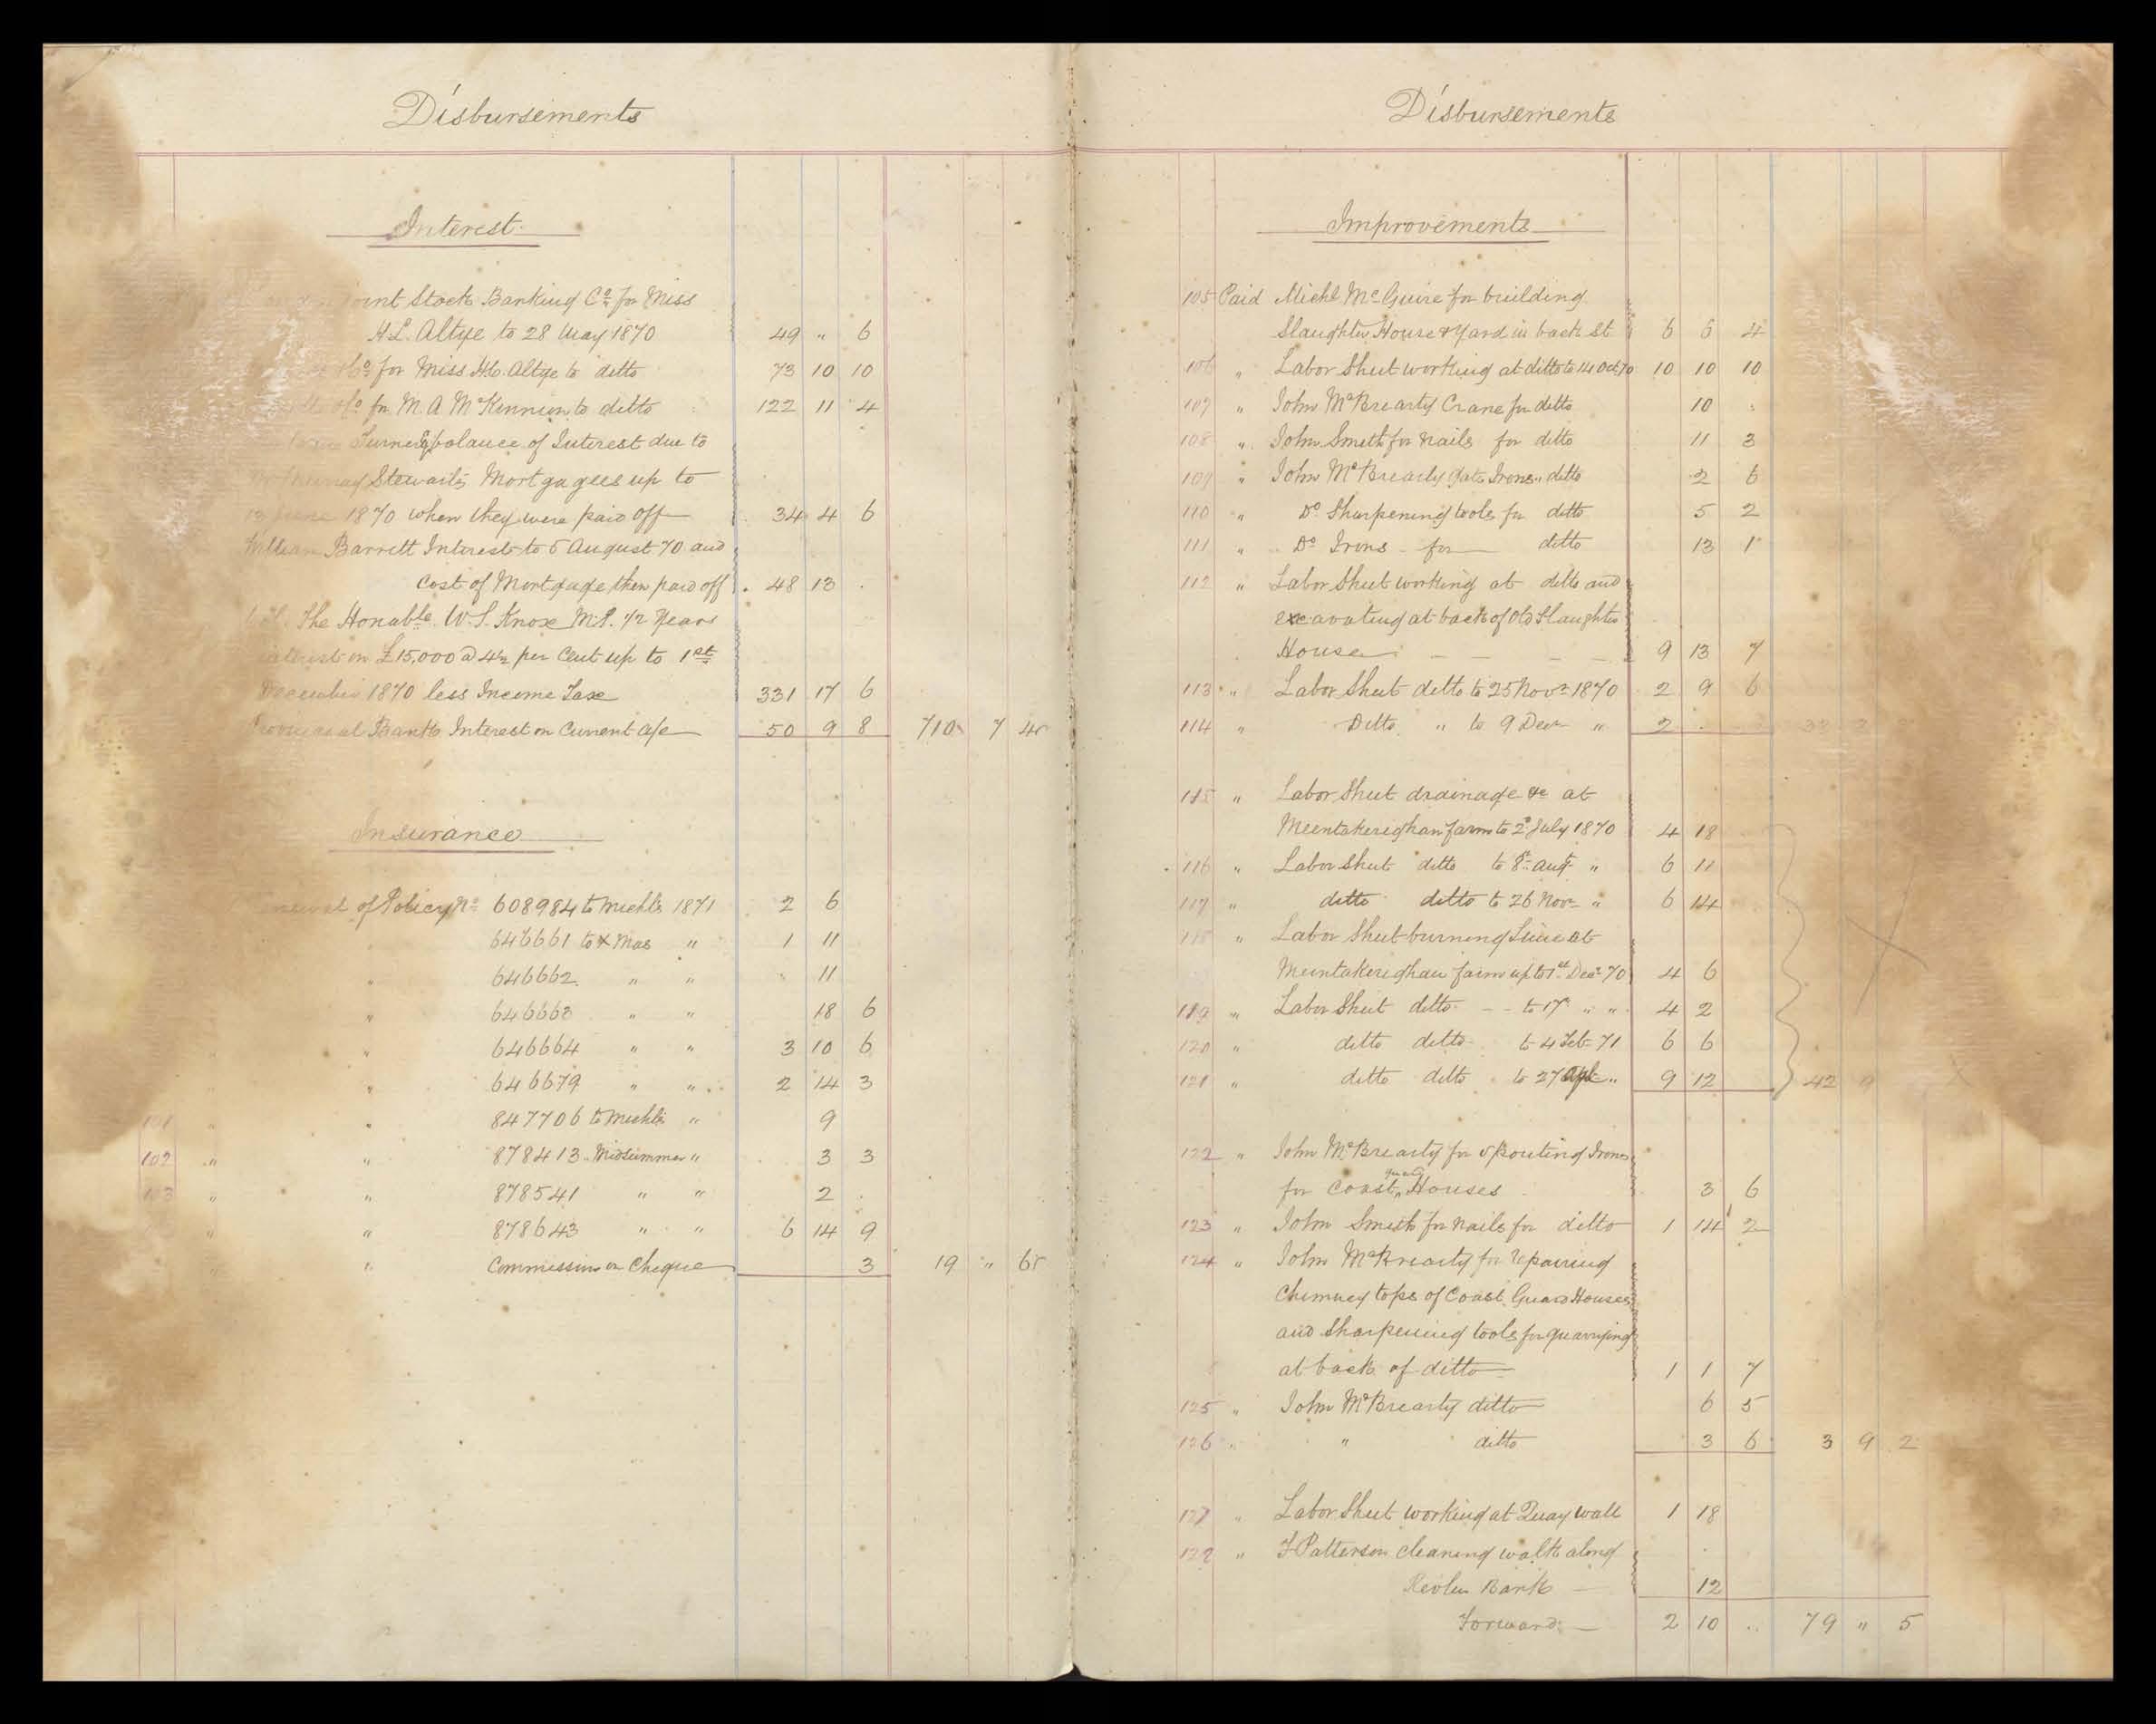 Disbursements
Interest
Joint Stock Banking Co. for Miss
H.L. Altye to 28 May 1870 49 " 6
for Miss Altye to ditto 73 10 10
for M. A McKinnon to ditto 122 11 4
balance of Interest due to
Murray Stewart's Mortgagees up to
June 1870 when they were paid off 34 4 6
William Barrett Interest to 5 August 70 and
Cost of Mortgage then paid off 48 13 .
The Honable. W. S. Knox M.P. 1/2 Years
interest on £15,000 @ 4½ per Cent up to 1st
December 1870 less Income Tax 331 17 6
Provincial Bank Interest on Current a/c 50 9 8 710 7 4
Insurance
of Policy No 608984 to Michls 1871 2 6
646661 to Xmas " 1 11
" 646662 " " 11
" 646663 " " 18 6
" 646664 " " 3 10 6
" 646679 " " 2 14 3
" 847706 to Michls " 9
102 " " 878413 Midsummer " 3 3
103 " " 878541 " " 2 .
" " 878643 " " 6 14 9
" Commission on Cheque 3 19 " 6
Disbursements
Improvements
105 Paid Michl McGuire for building
Slaughter House & Yard in back St 6 6 4
106 " Labor Sheet working at ditto to 14 Oct 70 10 10 10
107 " John McBrearty Crane for ditto 10 .
108 " John Smith for nails for ditto 11 3
109 " John McBrearty Gate Irons " ditto 2 6
110 " Do Sharpening tools for ditto 5 2
111 " Do Irons for ditto 13 1
112 " Labor Sheet working at ditto and
excavating at back of Old Slaughter
House 9 13 7
113 " Labor Sheet ditto to 25 Novr 1870 2 9 6
114 " Ditto " to 9 Decr " 2 . .
115 " Labor Sheet drainage &c at
Meentakerighan farm to 2d July 1870 4 18
116 " Labor Sheet ditto to 8th Augt " 6 11
117 " ditto ditto to 26 Novr " 6 14
118 " Labor Sheet burning Lime at
Meentakerighan farm up to 1st Decr 70 4 6
119 " Labor Sheet ditto - - to 17th " " 4 2
120 " ditto ditto to 4 Feb 71 6 6
121 " ditto ditto to 27 Apl " 9 12 42 9
122 " John McBrearty for spouting Irons
for Coast Guard Houses 3 6
123 " John Smith for Nails for ditto 1 14 2
124 " John McBrearty for repairing
Chimney tops of Coast Guard Houses
and Sharpening tools for quarrying
at back of ditto 1 1 7
125 " John McBrearty ditto 6 5
126 " " ditto 3 6 3 9 2
127 " Labor Sheet working at Quay wall 1 18
" Patterson cleaning walk along
Bank 12
Forward 2 10 .. 79 " 5